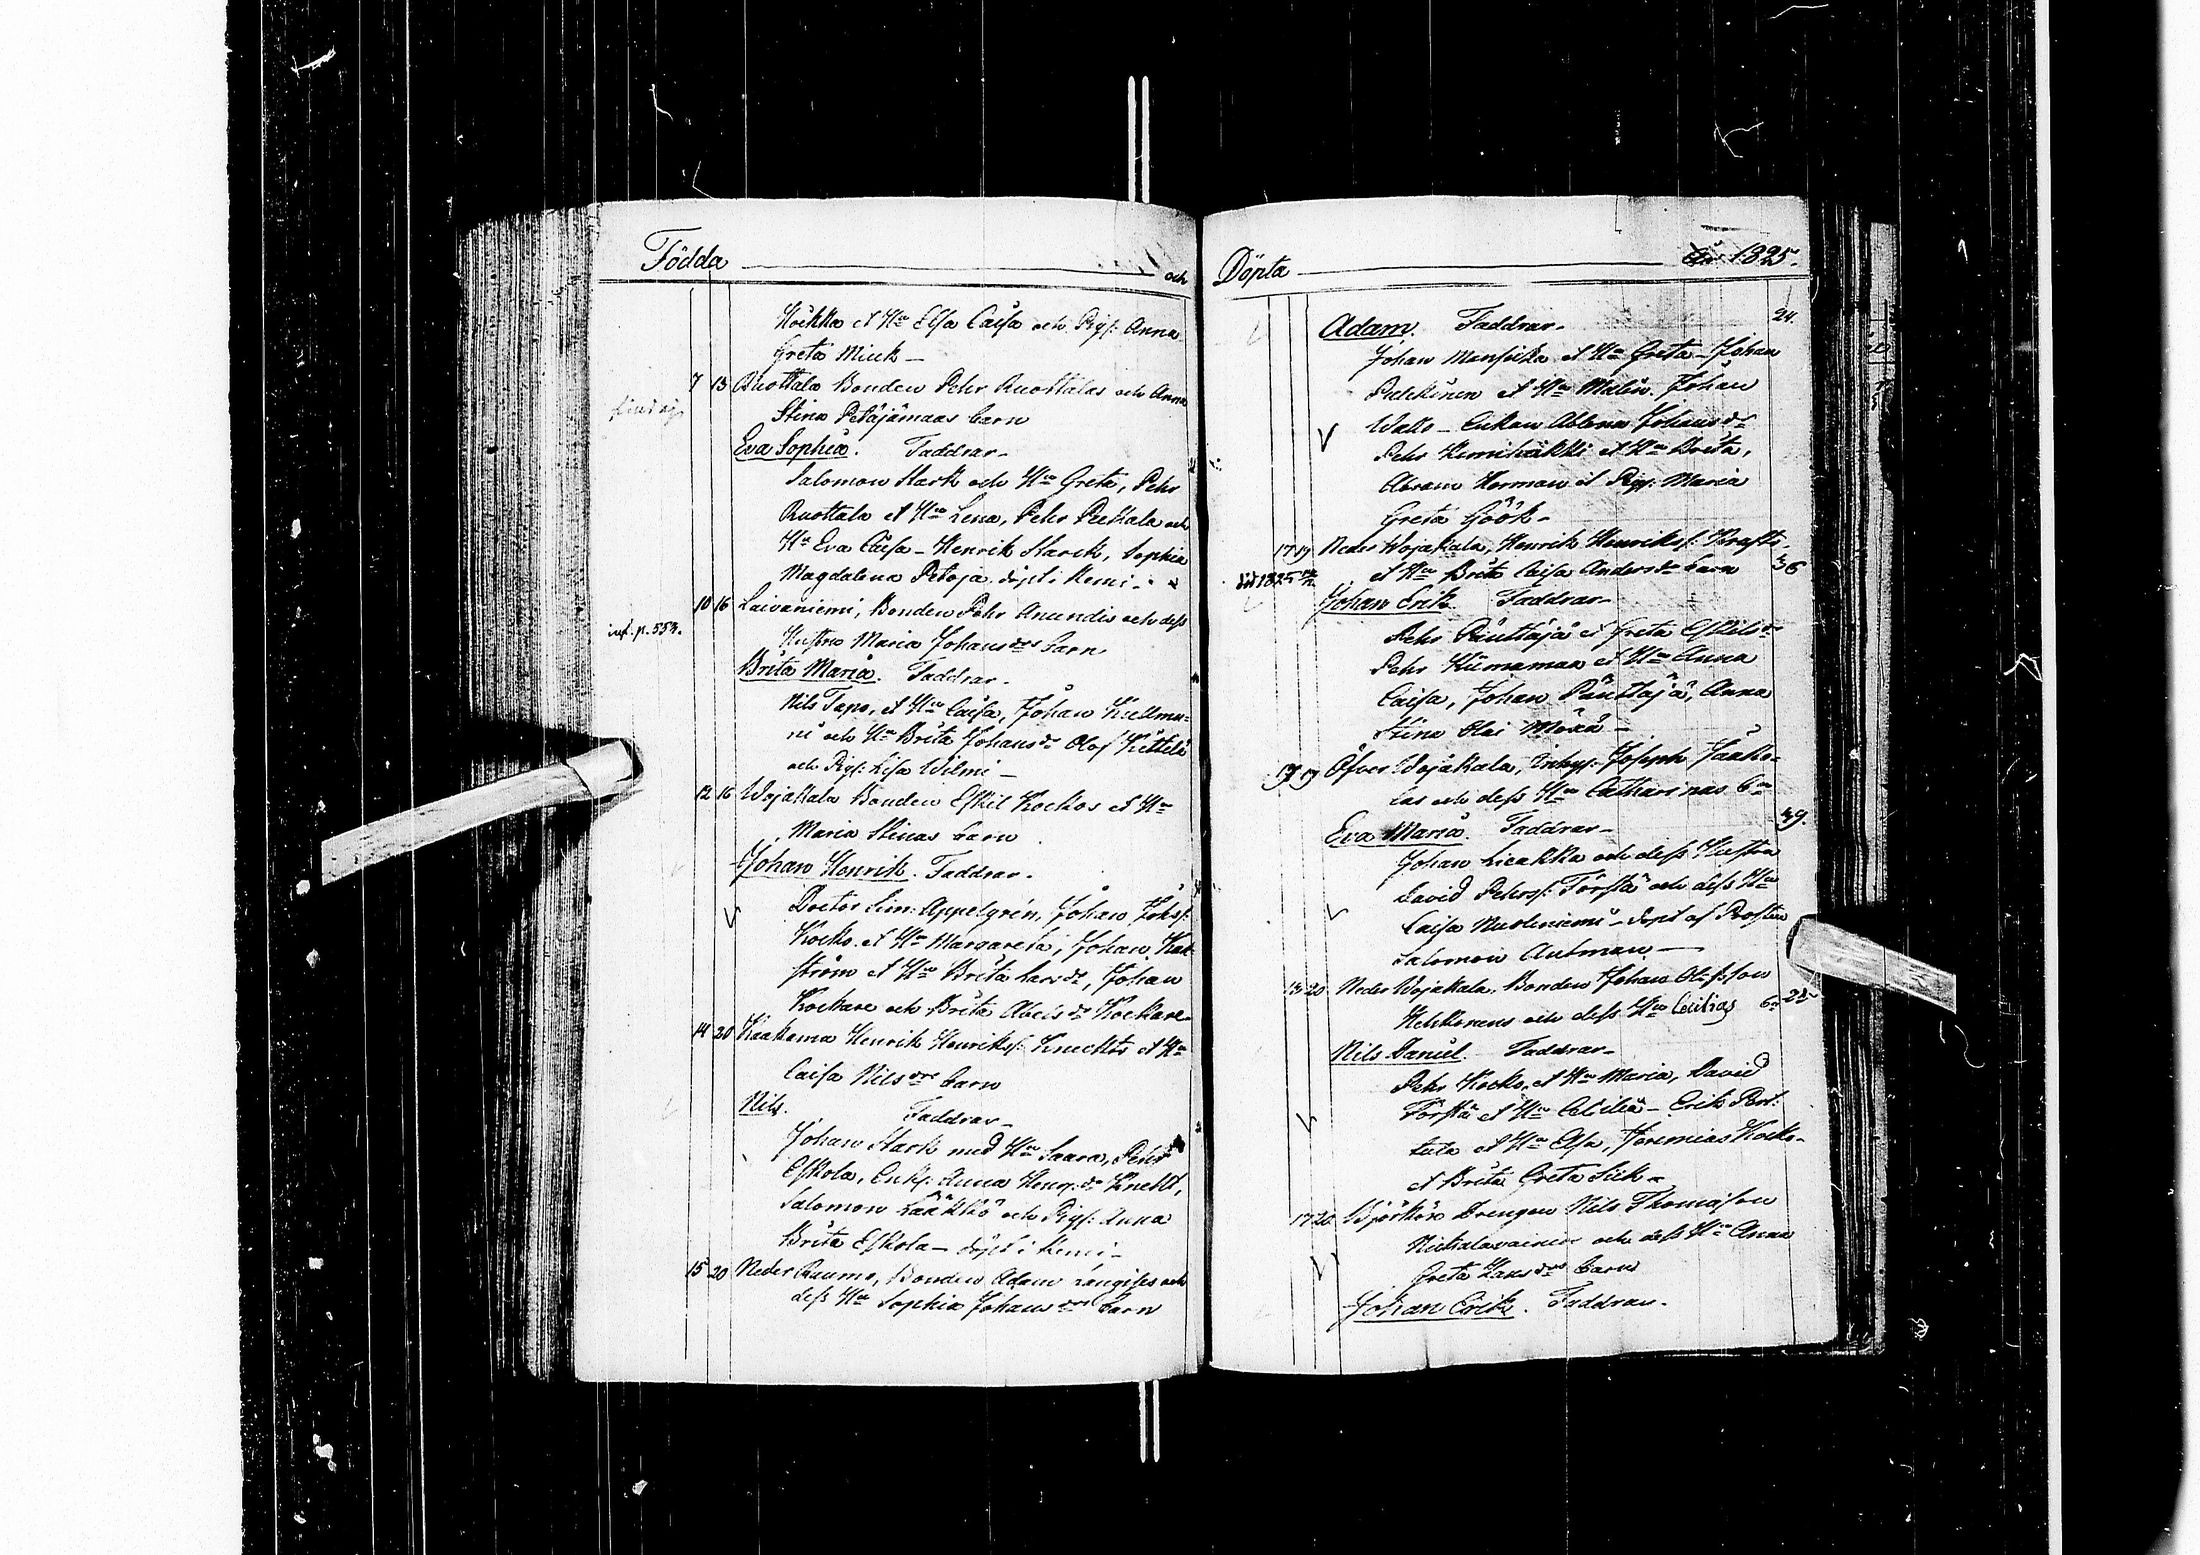 Födda och
Höckka et Hu Elsa Caisa och Pig: Anna
Greta Miuk —
7 13 Ruottala Bonden Pehr Ruottalas och Anna
Stina Petäjämaas barn
Eva Sophia. Faddrar —
Salomon Stark och Hu Greta, Pehr
Ruottala et Hu Lena, Pehr och
Hu Eva Caisa — Henrik Starck, Sophia
Magdalena Petäjä. döpt i Kemi —
inf. p. 553.
10 16 Laivaniemi, Bonden Pehr Anundis och dess
Hustru Maria Johansdrs barn
Brita Maria. Faddrar —
Nils Tapo, et Hu Caisa, Johan
och Hu Brita Johansdr Olof
och Pig: Lisa Wilmi —
12 16 Wojakala Bonden Eskil Kockos et Hu
Maria Stinas barn
Johan Henrik. Faddrar.
Doctor Sim: Appelgrén, Johan Johss:
Kocko et Hu Margareta, Johan
ström et Hu Brita Larsdr, Johan
Kockare och Brita Abelsdr Kockare
14 20 Kaakama Henrik Henrikss: Knecktes et Hu
Caisa Nilsdrs barn
Nils. Faddrar —
Johan Stark med Hu Saara, Pehr
Eskola, Enk: Anna Henr:dr Knekt,
Salomon Lääkkö och Pig: Anna
Brita Eskola — döpt i Kemi —
15 20 Neder Raumo, Bonden Adam Längises och
dess Hu Sophia Johansdrs barn
Döpta År 1825.
Adam. Faddrar — 24.
Johan Mansikka et Hu Greta — Johan
et Hu Malin. Johan
Enkan Johansdr
Pehr et Hu Brita,
Abram Herman et Pig: Maria
Greta Göök —
17 19 Neder Wojakala, Henrik Henrikss: Krafts
et Hu Brita Caisa Andersdr barn 36
död 1825
Johan Erik. Faddrar —
Pehr Pänttäjä et Greta Eskilsdr
Pehr Kiimamaa et Hu Anna
Caisa, Johan Pänttäjä, Anna
Stina Olai
17 19 Öfver Wojakala, Inhys: Joseph Jaako-
las och dess Hu Catharinas bn
Eva Maria. Faddrar — 39.
Johan Licakka och dess Hustru
David Pehrss: Förstä och dess Hu
Caisa Nuoliniemi — döpt af Prosten
Salomon Antman —
13 20 Neder Wojakala. Bonden Johan Olofsson
och dess Hu Cecilias bn 25
Nils Daniel. Faddrar —
Pehr Kocko, et Hu Maria, David
Förstä et Hu Cecilia — Erik
et Hu Elsa, Jeremias Kocko —
et Brita Greta Siik —
17 20 Björkön Drengen Nils Thomasson
och dess Hu Anna
Greta Hansdrs barn
Johan Erik. Faddrar.